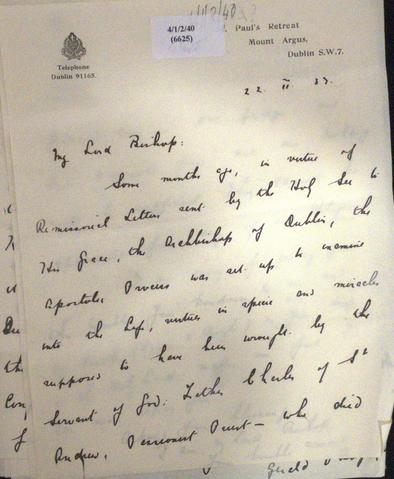 4/1/2/40
4/1/2/40
(6625)
Paul's Retreat
Mount Argus,
Dublin S.W.7.
Telephone
Dublin 91165.
22. II. 33.
My Lord Bishop:
Some months ago, in virtue of
Remissorial Letters sent by the Holy See to
His Grace, the Archbishop of Dublin, the
Apostolic Process was set up to examine
into the life, virtues in specie and miracles
supposed to have been wrought by the
Servant of God: Father Charles of St
Andrew, Passionist Priest — who died